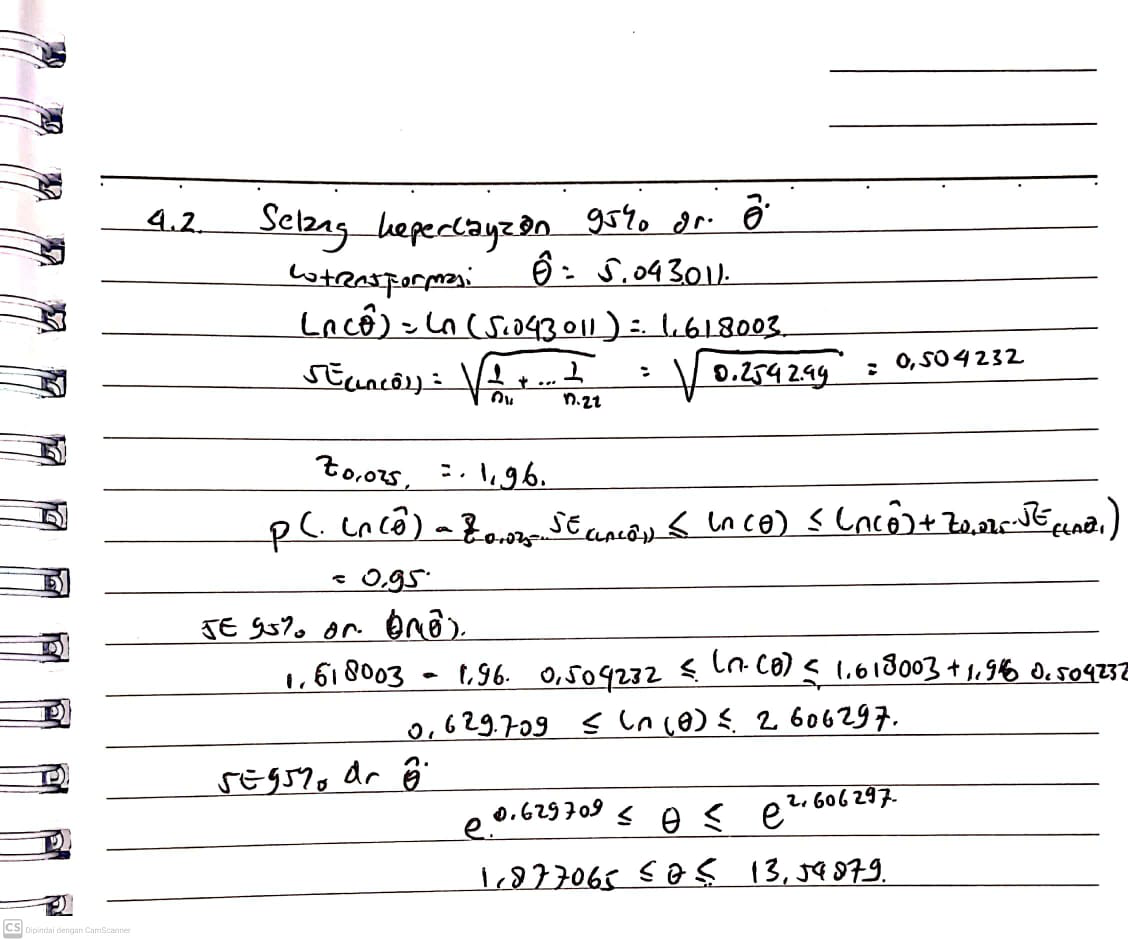 4.2. Selang kepercayaan 95% dr. θ̂
↳ transformasi θ̂ = 5.043011.
Ln(θ̂) = Ln (5.043011) = 1,618003.
SE(Ln(θ̂)) = √(1/n11 + ... 1/n.22) = √0.254299 = 0,504232
Z0,025, = 1,96.
P(. Ln(θ̂) - Z0,025. SE(Ln(θ̂)) ≤ Ln(θ) ≤ Ln(θ̂) + Z0,025. SE(Ln θ̂))
= 0.95.
SE 95% dr. Ln(θ̂).
1,618003 - 1,96. 0,504232 ≤ Ln.(θ) ≤ 1.618003 + 1,96 0.504232
0,629.709 ≤ Ln(θ) ≤ 2 606297.
SE 95% dr θ̂
e^0.629709 ≤ θ ≤ e^2,606297.
1,877065 ≤ θ ≤ 13,54879.
CS Dipindai dengan CamScanner